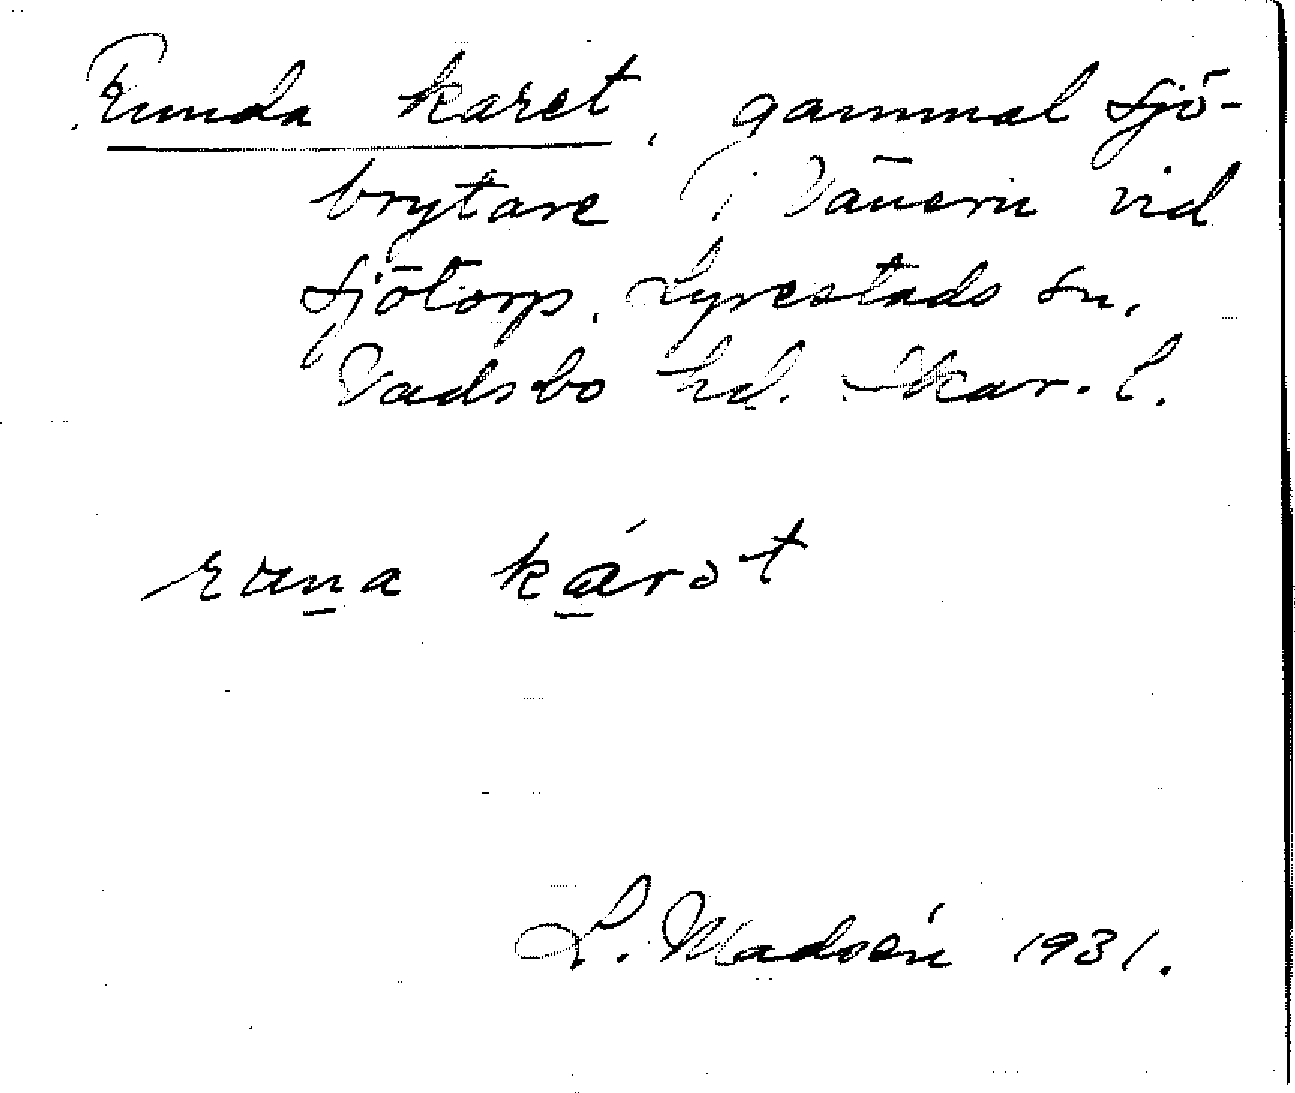 Runda karet, gammal sjö-
brytare i Vänern vid
Sjötorp, Lyrestads sn,
Vadsbo hd. Skar. l.
kárət
L. Madsén 1931.